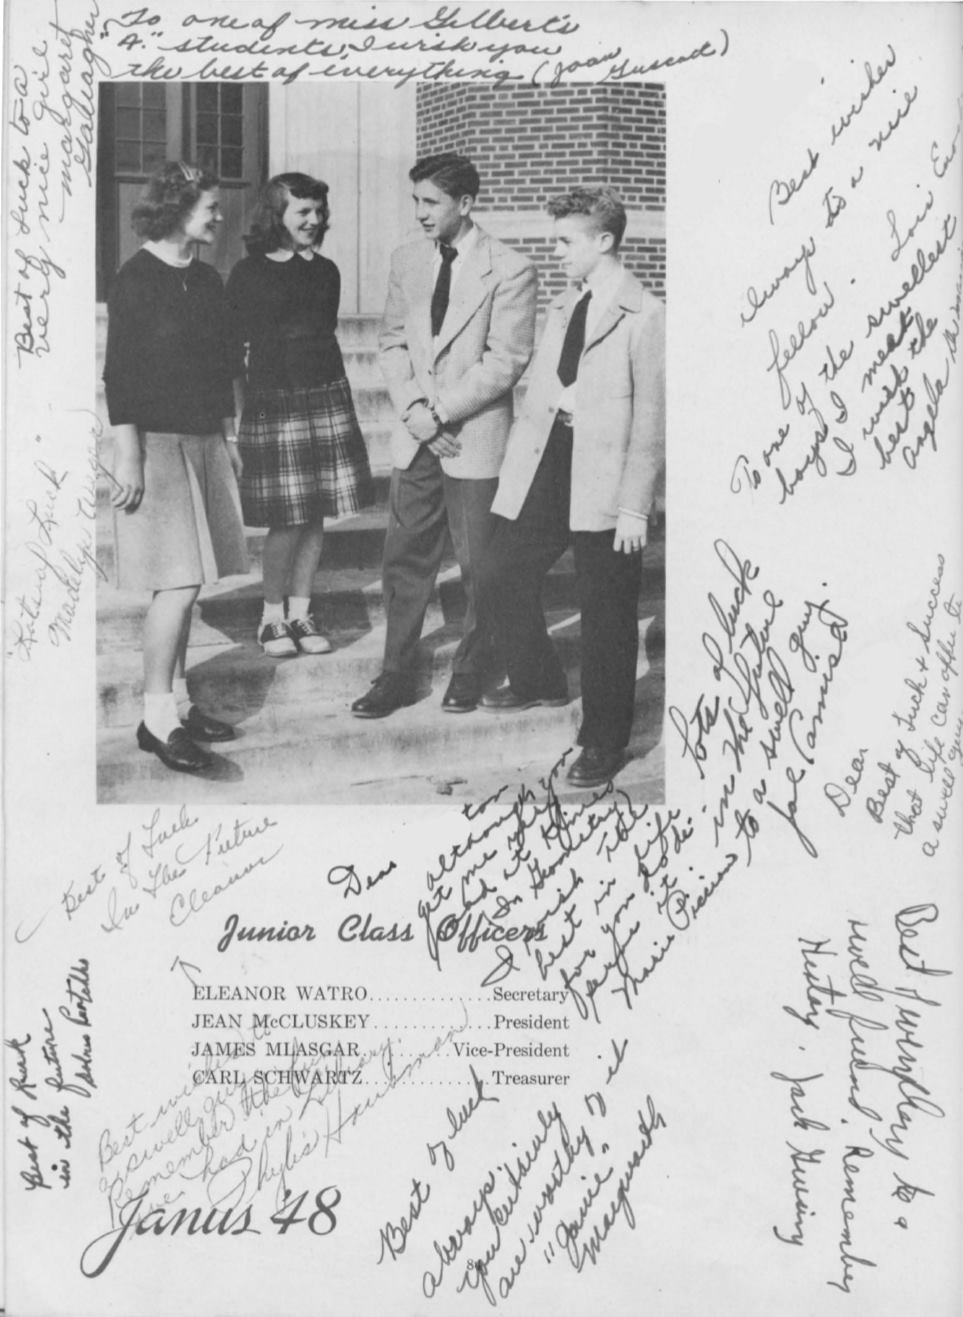 To one of miss Gilbert's
"A." students, I wish you
the best of everything (Joan
Best of Luck to a
very nice girl
Margaret
Gallagher
Best wishes
always to a nice
fellow. Lois
To one of the swellest
boys I meet
I wish the
best
Angela
"Lots of Luck"
Madelyn
Lots of luck
in the future
to a swell guy.
Joe
Dear
Best of Luck & Success
that life can offer to
a swell guy
Best of Luck
In The Future
Eleanor
Dear
although you
get me very
mad at times
In Geometry
I wish you the
best in life
for you do de-
serve it
Marie
Junior Class Officers
ELEANOR WATRO..............Secretary
JEAN McCLUSKEY..............President
JAMES MLASGAR..............Vice-President
CARL SCHWARTZ..............Treasurer
Best of Luck
in the future
Best wishes to
a swell guy.
Remember the fun
we had in Library.
Phylis
Best of luck
always.
you
are worthy of it
"Janie"
Best of everything to a
swell friend. Remember
History. Jack
Janus '48